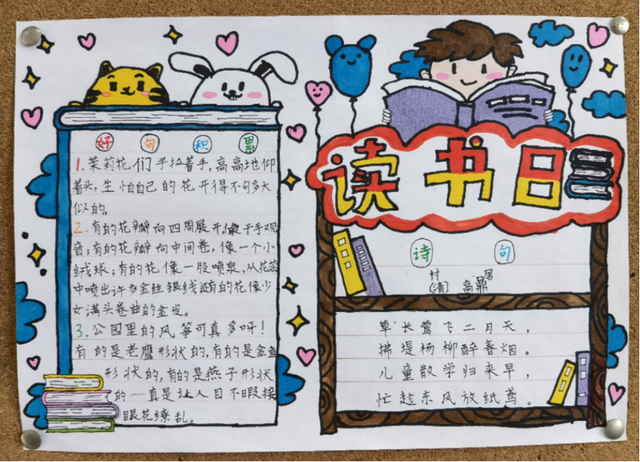 好句积累
1.茉莉花们手拉着手,高高地仰
着头,生怕自己的花开得不够大
似的。
2.有的花瓣向四周展开像千手观
音;有的花瓣向中间卷,像一个小
绒球;有的花像一股喷泉,从花蕊
中喷出许多金丝银线;还有的花像少
女满头卷曲的金发。
3.公园里的风筝可真多呀!
有的是老鹰形状的,有的是金鱼
形状的,有的是燕子形状
的……真是让人目不暇接
眼花缭乱。
读书日
诗句
村居
(清)高鼎
草长莺飞二月天,
拂堤杨柳醉春烟。
儿童散学归来早,
忙趁东风放纸鸢。